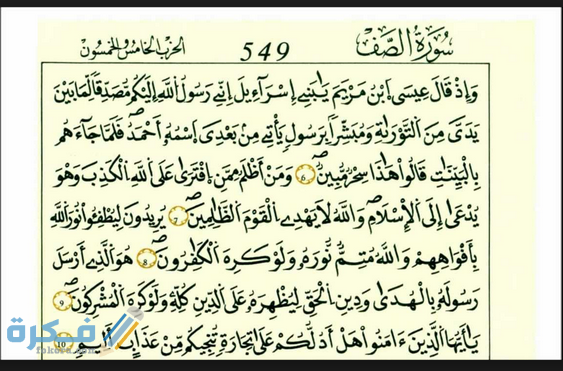 سُورَةُ الصَّفِّ 549 الحزب الخامس والخمسون
وَإِذْ قَالَ عِيسَى اَبْنُ مَرْيَمَ يَٰبَنِے إِسْرَآءِيلَ إِنِّے رَسُولُ اُللَّهِ إِلَيْكُم مُّصَدِّقاً لِّمَا بَيْنَ
يَدَىَّ مِنَ اَلتَّوْرَيٰةِ وَمُبَشِّراَۢ بِرَسُولٖ يَأْتِے مِنۢ بَعْدِىَ اَسْمُهُۥٓ أَحْمَدُۖ فَلَمَّا جَآءَهُم
بِالْبَيِّنَٰتِ قَالُواْ هَٰذَا سِحْرٞ مُّبِينٞۖ 6 وَمَنَ اَظْلَمُ مِمَّنِ اِفْتَرَىٰ عَلَى اَللَّهِ اِلْكَذِبَ وَهُوَ
يُدْعَىٰٓ إِلَى اَلِاسْلَٰمِۖ وَاللَّهُ لَا يَهْدِے اِلْقَوْمَ اَلظَّٰلِمِينَۖ 7 يُرِيدُونَ لِيُطْفِـُٔواْ نُورَ اَللَّهِ
بِأَفْوَٰهِهِمْ وَاللَّهُ مُتِمّٞ نُورَهُۥ وَلَوْ كَرِهَ اَلْكَٰفِرُونَۖ 8 هُوَ اَلذِےٓ أَرْسَلَ
رَسُولَهُۥ بِالْهُدَىٰ وَدِينِ اِلْحَقِّ لِيُظْهِرَهُۥ عَلَى اَلدِّينِ كُلِّهِۦ وَلَوْ كَرِهَ اَلْمُشْرِكُونَۖ 9
يَٰٓأَيُّهَا اَلذِينَ ءَامَنُواْ هَلَ اَدُلُّكُمْ عَلَىٰ تِجَٰرَةٖ تُنجِيكُم مِّنْ عَذَابٍ اَلِيمٖۖ 10
فكرة